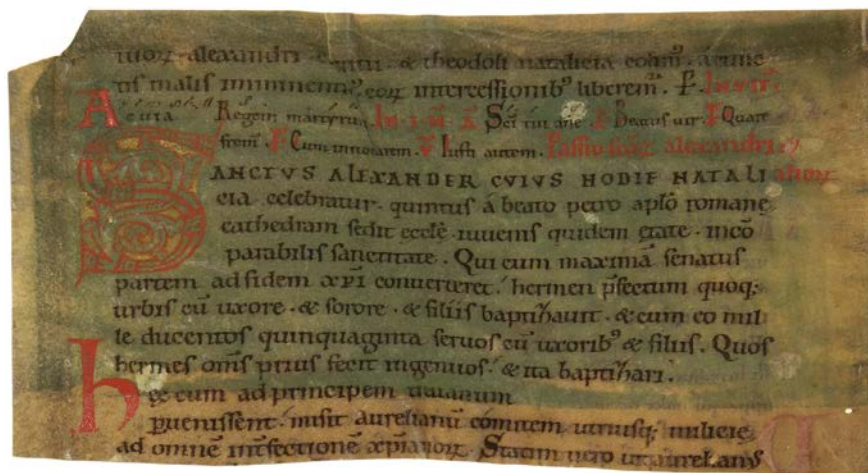 tuoꝝ alexandri & theodoli natalicia colim᷒ . a cunc
tis malis imminentib᷒ eoꝝ intercessionib᷒ liberem᷒ . P̶.
A euia Regem martyrum . IN . I . N . A Sc̄i tui dn̄e . P̶ Beatus uir . P̶ Quare
frem̄ . P̶ Cum inuocarem . V̄ Iusti autem . Passio scōꝝ alexandri &
SANCTVS ALEXANDER CVIVS HODIE NATALI alioꝝ
cia celebratur . quintus á beato petro aplō romanę
cathedram sedit ecclę . iuuenis quidem ętate . incō
parabilis sanctitate . Qui cum maximā senatus
partem ad fidem xp̄i conuerteret . hermen p̄fectum quoq;
urbis cū uxore . & sorore . & filiis baptizauit . & cum eo mil
le ducentos quinquaginta seruos cū uxorib᷒ & filiis . Quos
hermes om̄s prius fecit ingenuos . & ita baptizari .
hęc cum ad principem traianum
p̱uenissent . misit aurelianū comitem utriusq; milicię
ad omnē int̄fectionē xp̄ianoꝝ . Statim uero ut aurelian᷒